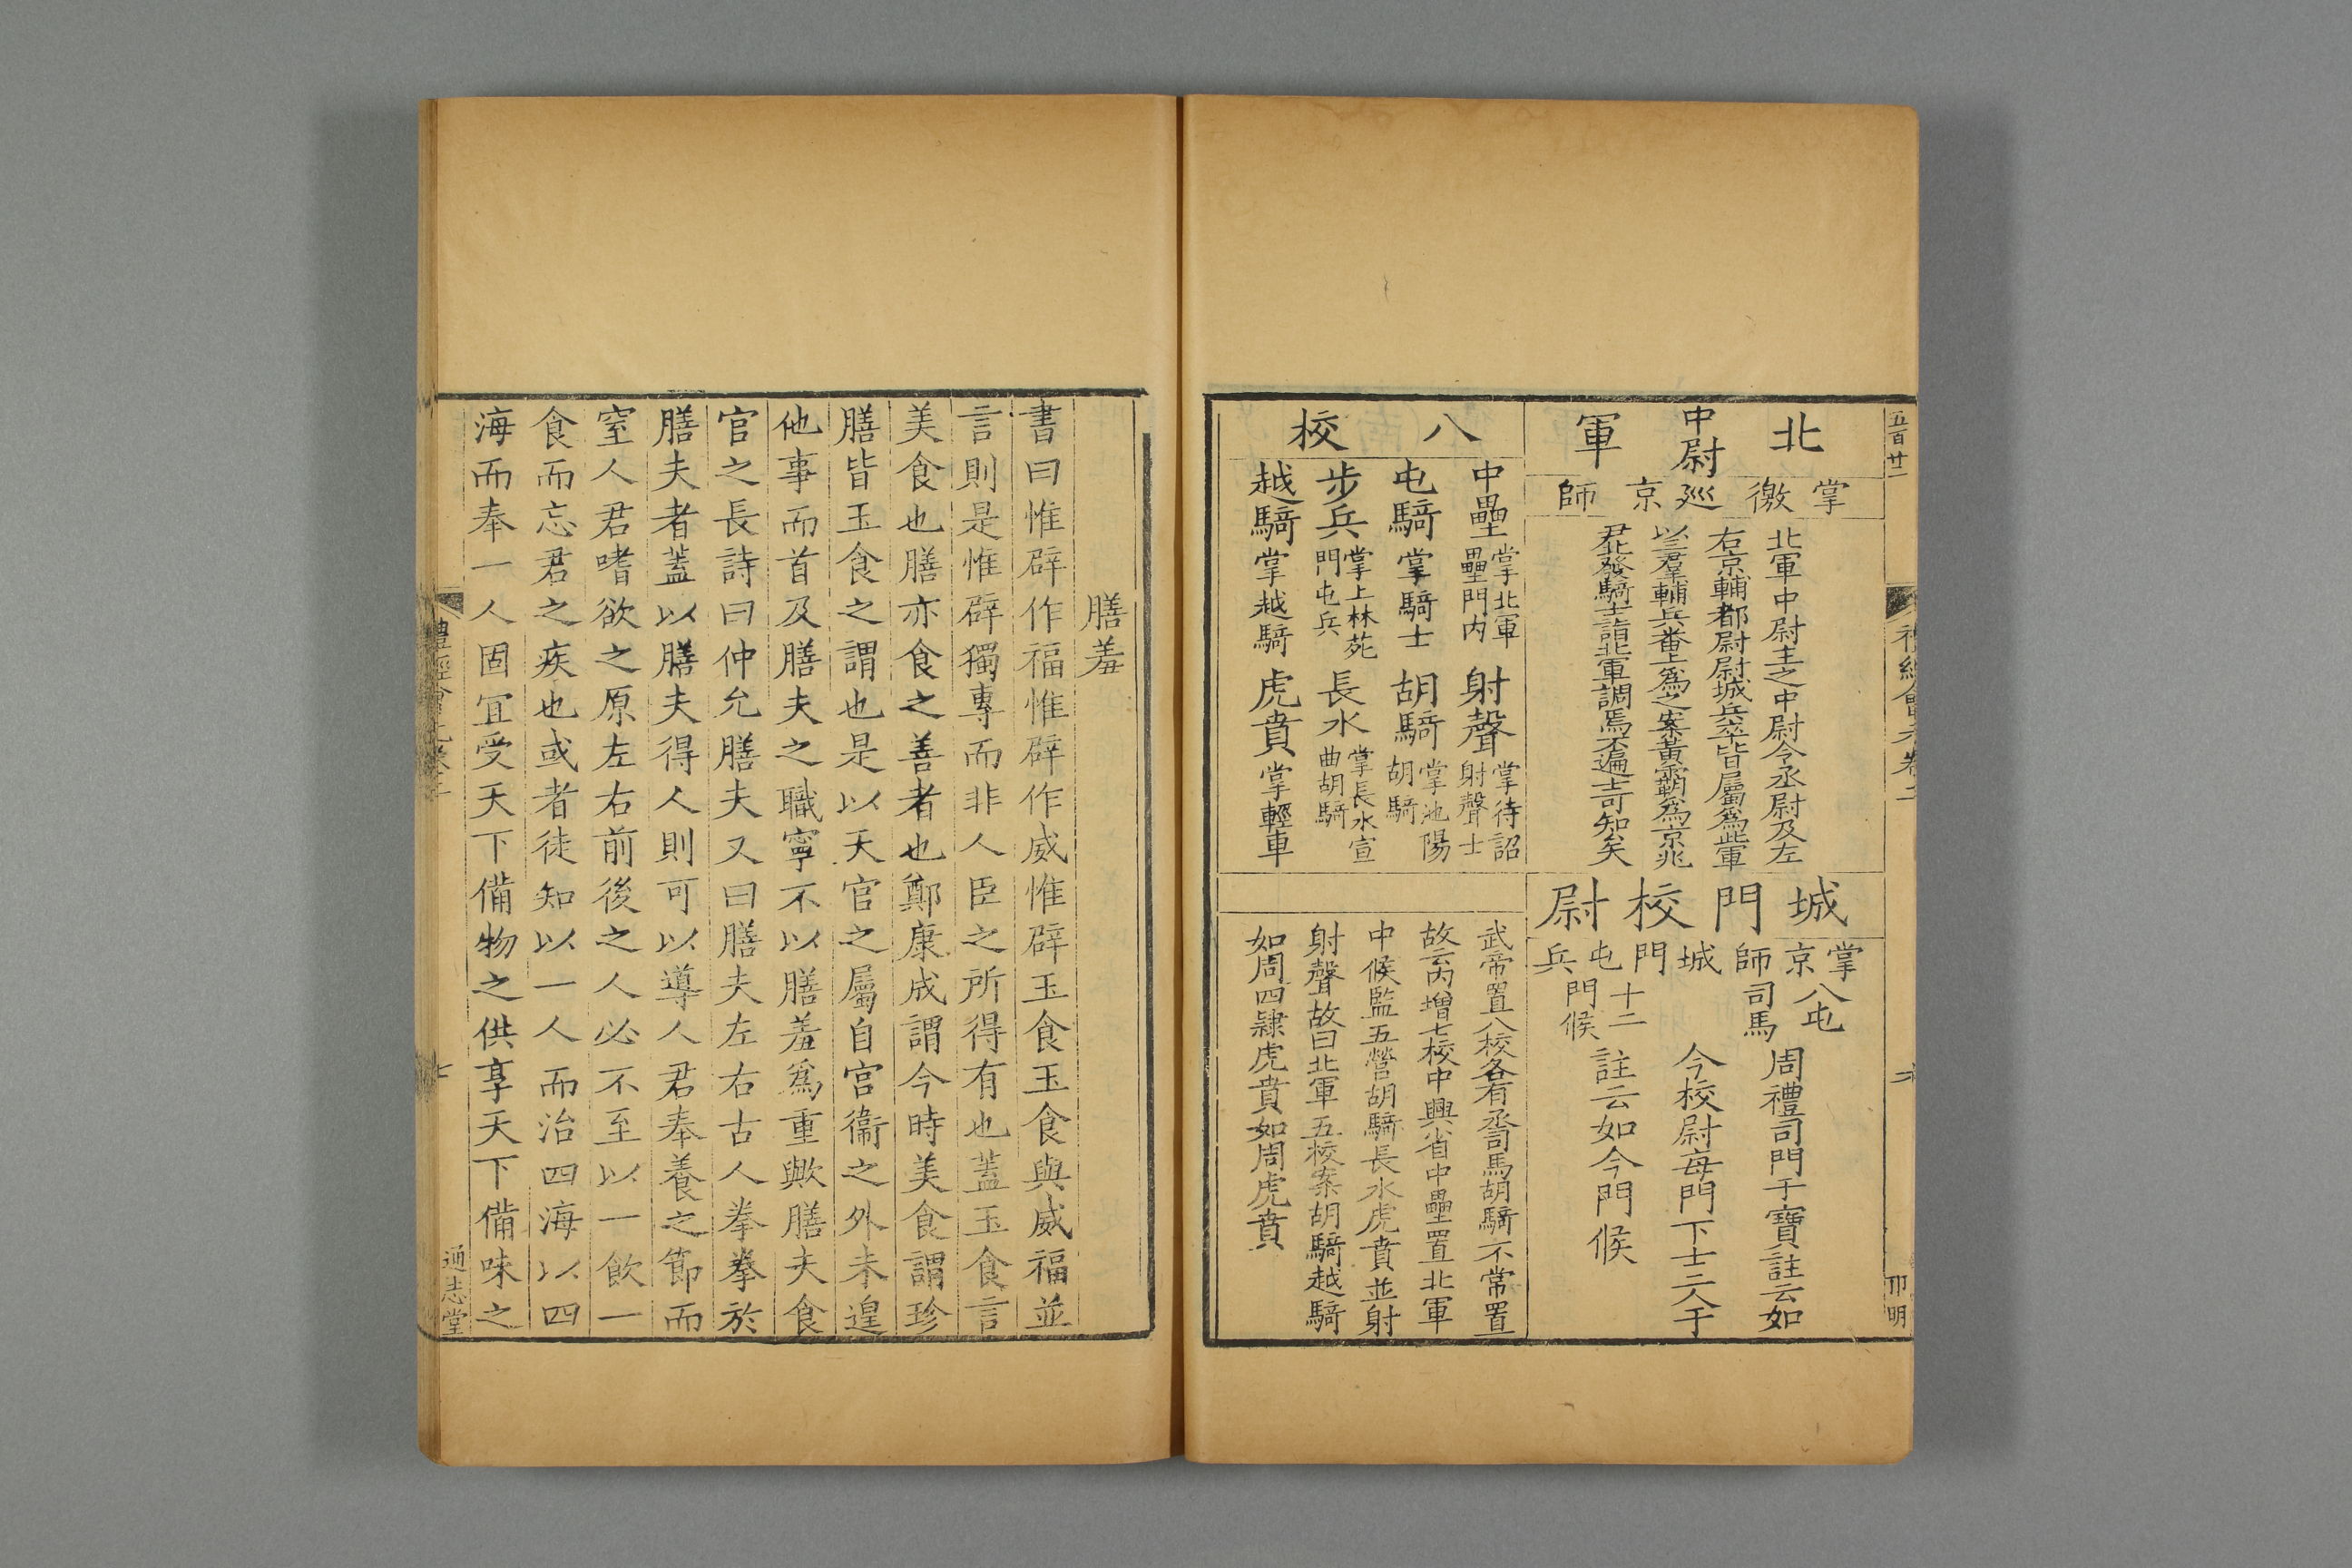 五百廿二
卷二
印明
北軍
中尉
掌徼巡京師
北軍中尉主之中尉令丞尉及左
右京輔都尉尉城兵卒皆屬焉此軍
以三羣輔兵番上為之案黃霸為京兆
君北發騎士詣北軍調馬不適士可知矣
城門校尉
掌京師城門屯兵
八屯司馬
十二門候
周禮司門干寶註云如
今校尉每門下士二人于
註云如今門候
八校
中壘掌北軍壘門內
射聲掌待詔射聲士
屯騎掌騎士
胡騎掌池陽胡騎
步兵掌上林苑門屯兵
長水掌長水宣曲胡騎
越騎掌越騎
虎賁掌輕車
武帝置八校各有丞司馬胡騎不常置
故云內增七校中興省中壘置北軍
中候監五營胡騎長水虎賁並射
射聲故曰北軍五校案胡騎越騎
如周四隸虎賁如周虎賁
膳羞
書曰惟辟作福惟辟作威惟辟玉食玉食與威福並
言則是惟辟獨專而非人臣之所得有也蓋玉食言
美食也膳亦食之善者也鄭康成謂今時美食謂珍
膳皆玉食之謂也是以天官之屬自宮衞之外未遑
他事而首及膳夫之職寧不以膳羞為重歟膳夫食
官之長詩曰仲允膳夫又曰膳夫左右古人拳拳於
膳夫者蓋以膳夫得人則可以導人君奉養之節而
窒人君嗜欲之原左右前後之人必不至以一飲一
食而忘君之疾也或者徒知以一人而治四海以四
海而奉一人固宜受天下備物之供享天下備味之
七
通志堂